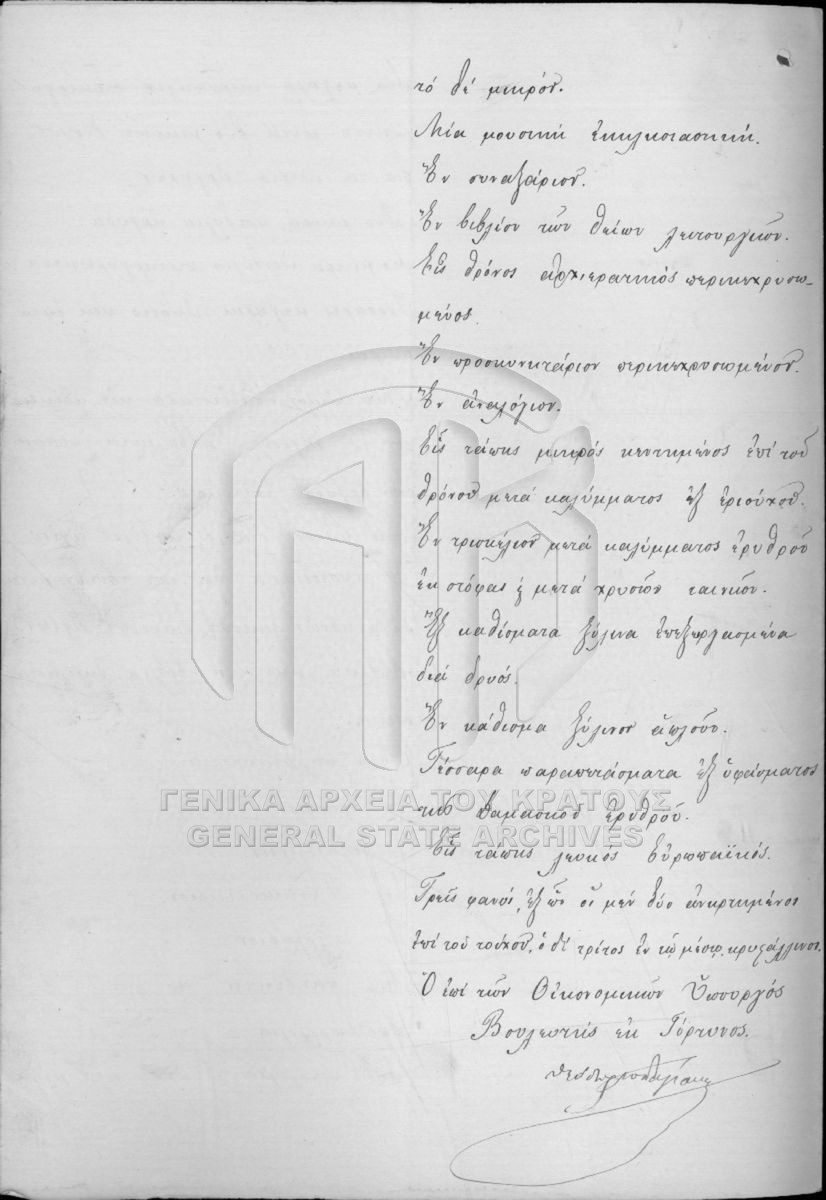 τό δέ μικρόν.
Μία μουσική ἐκκλησιαστική.
Ἕν συναξάριον.
Ἕν βιβλίον τῶν θείων λειτουργιῶν.
Εἷς θρόνος ἀρχιερατικός περικεχρυσω-
μένος.
Ἕν προσκυνητάριον περικεχρυσωμένον.
Ἕν ἀναλόγιον.
Εἷς τάπης μικρός κεντημένος ἐπί τοῦ
θρόνου μετά καλύμματος ἐξ ἐριούχου.
Ἕν τρισκέλιον μετά καλύμματος ἐρυθροῦ
ἐκ στόφας ἤ μετά χρυσῶν ταινιῶν.
Ἕξ καθίσματα ξύλινα ἐπεξειργασμένα
διά δρυός.
Ἕν κάθισμα ξύλινον ἁπλοῦν.
Τέσσαρα παραπετάσματα ἐξ ὑφάσματος
τοῦ δαμασκοῦ ἐρυθροῦ.
ΓΕΝΙΚΑ ΑΡΧΕΙΑ ΤΟΥ ΚΡΑΤΟΥΣ
GENERAL STATE ARCHIVES
Εἷς τάπης λευκός Εὐρωπαϊκός.
Τρεῖς φανοί, ἐξ ὧν οἱ μέν δύο ἀνηρτημένος
ἐπί τοῦ τοίχου, ὁ δέ τρίτος ἐν τῷ μέσῳ, κρυστάλλινος.
Ὁ ἐπί τῶν Οἰκονομικῶν Ὑπουργός
Βουλευτής ἐκ Γόρτυνος.